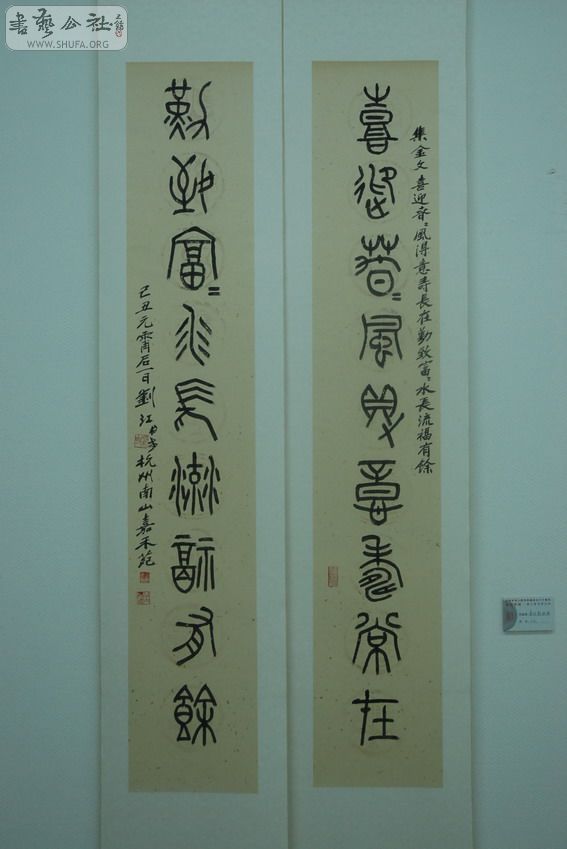 書藝公社
WWW.SHUFA.ORG
集金文喜迎春〻風得意壽長在勤致富〻水長流福有餘
喜迎春〻風得意壽常在
勤致富〻水長流福有餘
己丑元霄后一日劉江
杭州南山嘉禾苑